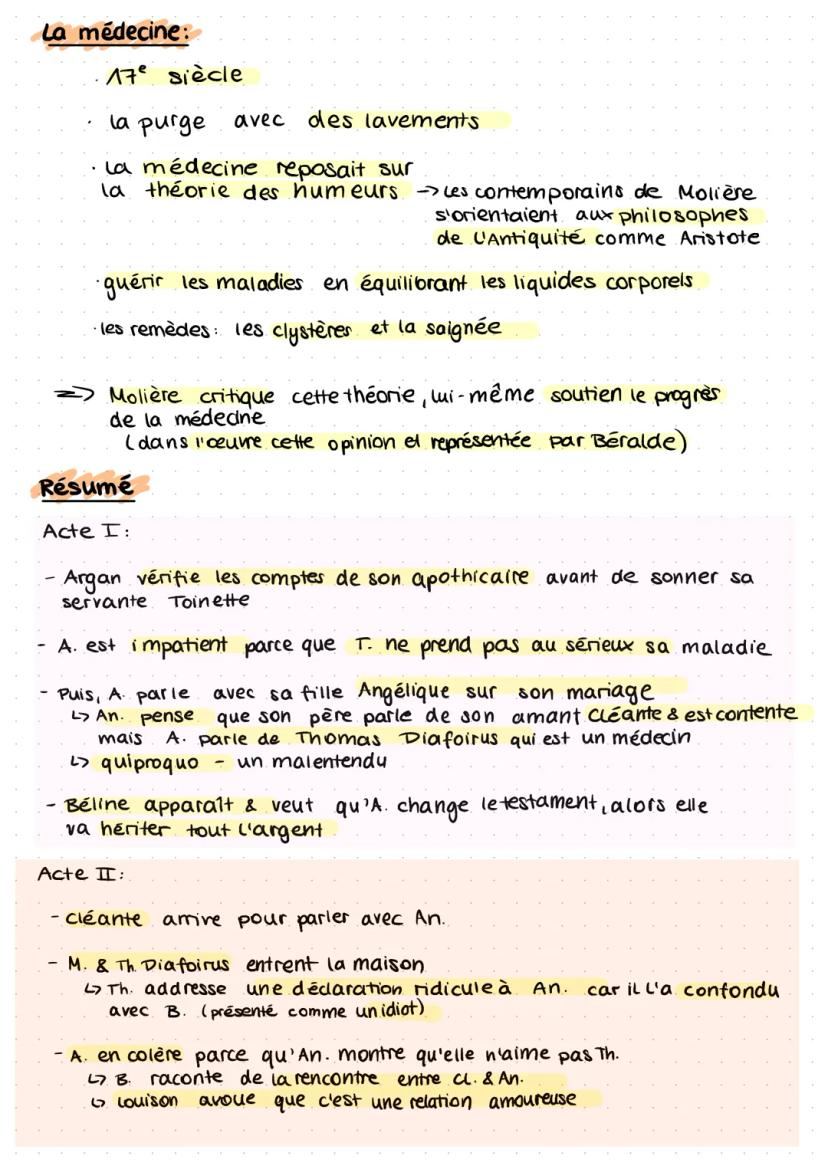 La médecine:
· 17e siècle
· la purge avec des lavements
· La médecine reposait sur
la théorie des humeurs -> Les contemporains de Molière
s'orientaient aux philosophes
de l'Antiquité comme Aristote
· guérir les maladies en équilibrant les liquides corporels
· les remèdes: les clystères et la saignée
=> Molière critique cette théorie, lui-même soutien le progrès
de la médecine
(dans l'œuvre cette opinion et représentée par Béralde)
Résumé
Acte I:
- Argan vérifie les comptes de son apothicaire avant de sonner sa
servante Toinette
- A. est impatient parce que T. ne prend pas au sérieux sa maladie
- Puis, A. parle avec sa fille Angélique sur son mariage
↳ An. pense que son père parle de son amant Cléante & est contente
mais A. parle de Thomas Diafoirus qui est un médecin
↳ quiproquo - un malentendu
- Béline apparaît & veut qu'A. change le testament, alors elle
va hériter tout l'argent
Acte II:
- Cléante arrive pour parler avec An.
- M. & Th. Diafoirus entrent la maison
↳ Th. addresse une déclaration ridicule à An. car il l'a confondu
avec B. (présenté comme un idiot)
- A. en colère parce qu'An. montre qu'elle n'aime pas Th.
↳ B. raconte de la rencontre entre Cl. & An.
↳ Louison avoue que c'est une relation amoureuse